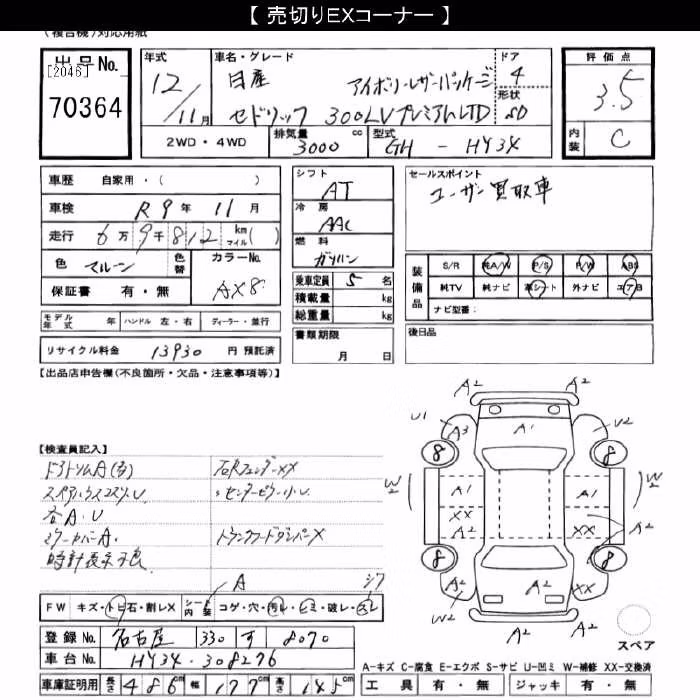 【 売切りEXコーナー 】
(複合機)対応用紙
出品No.
[2046]
70364
年式 12/11月
車名・グレード 日産 アイボリーレザーパッケージ
セドリック 300LVプレミアムLTD
ドア 4
形状 SD
評価点 3.5
内装 C
2WD・4WD
排気量 3000 cc
型式 GH - HY34
車歴 自家用・( )
車検 R9年 11月
走行 6万9千812 km マイル( )
色 マルーン 色替
カラーNo. AX8
保証書 有・無
モデル年式 年 ハンドル 左・右 ディーラー・並行
リサイクル料金 13930 円 預託済
シフト AT
冷房 AAC
燃料 ガソリン
乗車定員 5 名
積載量 kg
総重量 kg
書類期限
月 日
セールスポイント
ユーザー買取車
装備品
S/R 純A/W P/S P/W ABS
純TV 純ナビ 革シート 外ナビ エアB
ナビ型番:
後日品
【出品店申告欄(不良箇所・欠品・注意事項等)】
【検査員記入】
各A.U
時計表示不良
トランクフードダンパーX
A
FW キズ・トビ石・割レX シート内装 コゲ・穴・汚レ・シミ・破レ・スレ
登録No. 名古屋 330 す 8070
車台No. HY34-308276
車庫証明用 長さ 486cm 幅 177cm 高さ 145cm
A2 A2
U1 A3 A1 U2
8 8
W2 A1 A1 W2
XX A2 XX A2
8 8
A2 A2 A2 XX
W2 A2 A2
スペア
A-キズ C-腐食 E-エクボ S-サビ U-凹ミ W-補修 XX-交換済
工具 有・無 ジャッキ 有・無